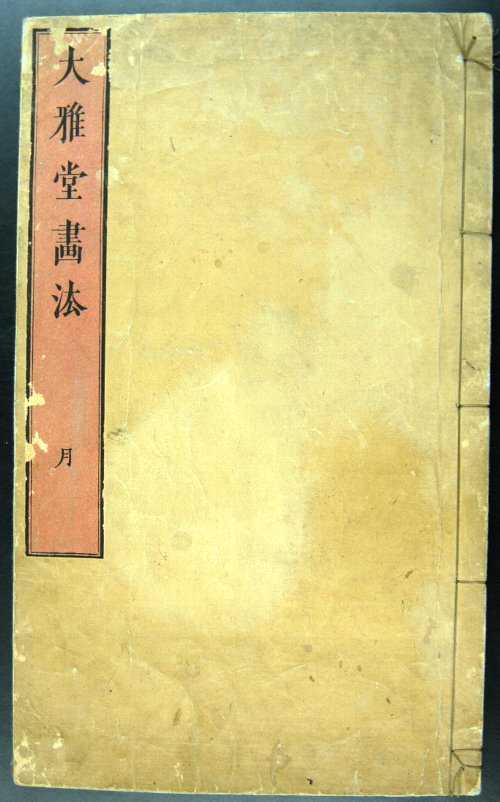 大雅堂畫法
月